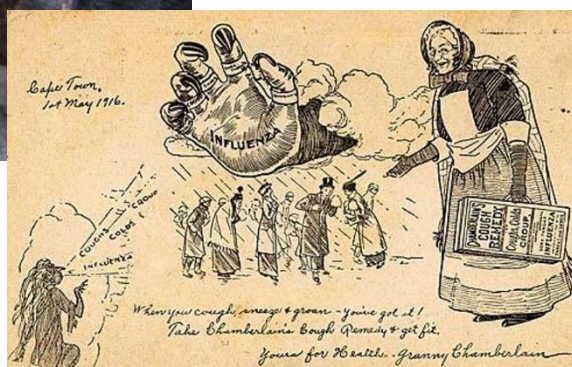 Cape Town,
1st May 1916.
INFLUENZA
COUGHS COLDS CROUP
INFLUENZA
CHAMBERLAIN'S
COUGH
REMEDY
Coughs, Colds
CROUP
INFLUENZA
When you cough, sneeze & groan - you've got it!
Take Chamberlain's Cough Remedy & get fit.
Yours for Health - Granny Chamberlain